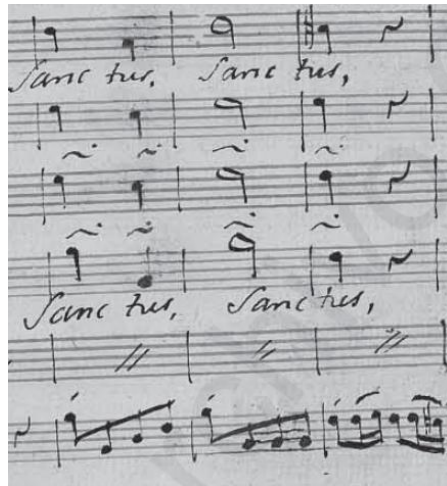 Sanctus, Sanctus,
Sanctus, Sanctus,